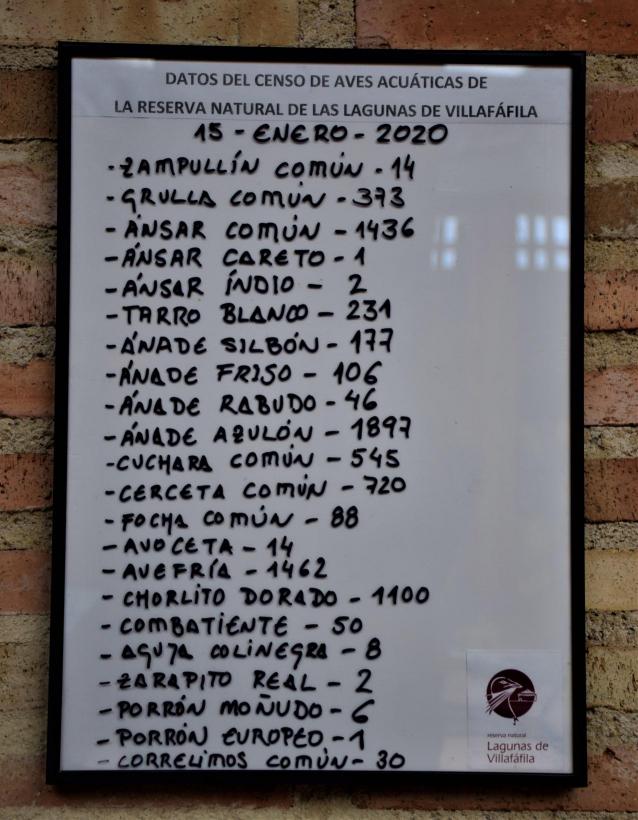 DATOS DEL CENSO DE AVES ACUÁTICAS DE
LA RESERVA NATURAL DE LAS LAGUNAS DE VILLAFÁFILA
15 - ENERO - 2020
- ZAMPULLÍN COMÚN - 14
- GRULLA COMÚN - 373
- ÁNSAR COMÚN - 1436
- ÁNSAR CARETO - 1
- ÁNSAR ÍNDIO - 2
- TARRO BLANCO - 231
- ÁNADE SILBÓN - 177
- ÁNADE FRISO - 106
- ÁNADE RABUDO - 46
- ÁNADE AZULÓN - 1897
- CUCHARA COMÚN - 545
- CERCETA COMÚN - 720
- FOCHA COMÚN - 88
- AVOCETA - 14
- AVEFRÍA - 1462
- CHORLITO DORADO - 1100
- COMBATIENTE - 50
- AGUJA COLINEGRA - 8
- ZARAPITO REAL - 2
- PORRÓN MOÑUDO - 6
- PORRÓN EUROPEO - 1
- CORRELIMOS COMÚN - 30
reserva natural
Lagunas de
Villafáfila